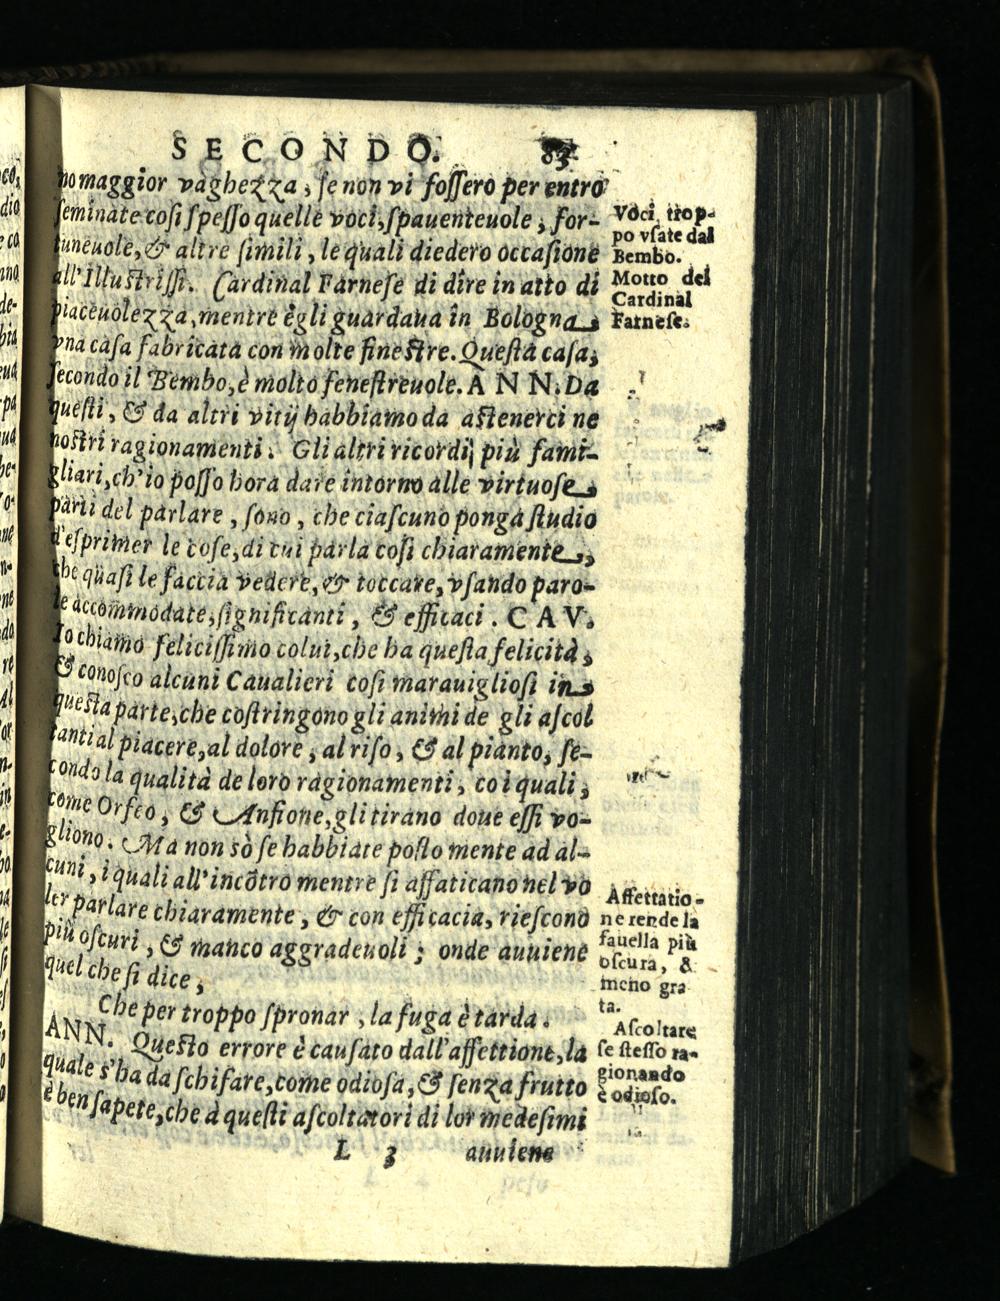 SECONDO. 83
no maggior vaghezza, se non vi fossero per entro
seminate cosi spesso quelle voci, spauenteuole, for-
tuneuole, & altre simili, le quali diedero occasione
all'Illustrissi. Cardinal Farnese di dire in atto di
piaceuolezza, mentre egli guardaua in Bologna,
vna casa fabricata con molte finestre. Questa casa,
secondo il Bembo, è molto fenestreuole. ANN. Da
questi, & da altri vitij habbiamo da astenerci ne
nostri ragionamenti. Gli altri ricordi, più fami-
gliari, ch'io posso hora dare intorno alle virtuose,
parti del parlare, sono, che ciascuno ponga studio
d'esprimer le cose, di cui parla cosi chiaramente,
che quasi le faccia vedere, & toccare, vsando paro-
le accommodate, significanti, & efficaci. CAV.
Io chiamo felicissimo colui, che ha questa felicità,
& conosco alcuni Caualieri cosi marauigliosi in
questa parte, che costringono gli animi de gli ascol
tanti al piacere, al dolore, al riso, & al pianto, se-
condo la qualità de loro ragionamenti, co i quali,
come Orfeo, & Anfione, gli tirano doue essi vo-
gliono. Ma non sò se habbiate posto mente ad al-
cuni, i quali all'incõtro mentre si affaticano nel vo
ler parlare chiaramente, & con efficacia, riescono
più oscuri, & manco aggradeuoli; onde auuiene
quel che si dice,
Che per troppo spronar, la fuga è tarda.
ANN. Questo errore è causato dall'affettione, la
quale s'ha da schifare, come odiosa, & senza frutto
è ben sapete, che à questi ascoltatori di lor medesimi
L 3 auuiene
Voci trop-
po vsate dal
Bembo.
Motto del
Cardinal
Farnese.
Affettatio-
ne rende la
fauella più
oscura, &
meno gra
ta.
Ascoltare
se stesso ra-
gionando
è odioso.